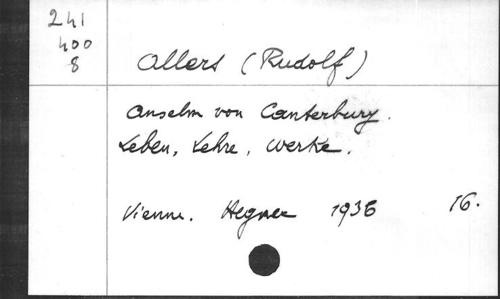 241
400
8
Allers (Rudolf)
Anselm von Canterbury.
Leben, Lehre, Werke.
Vienne. Hegner 1936 16.